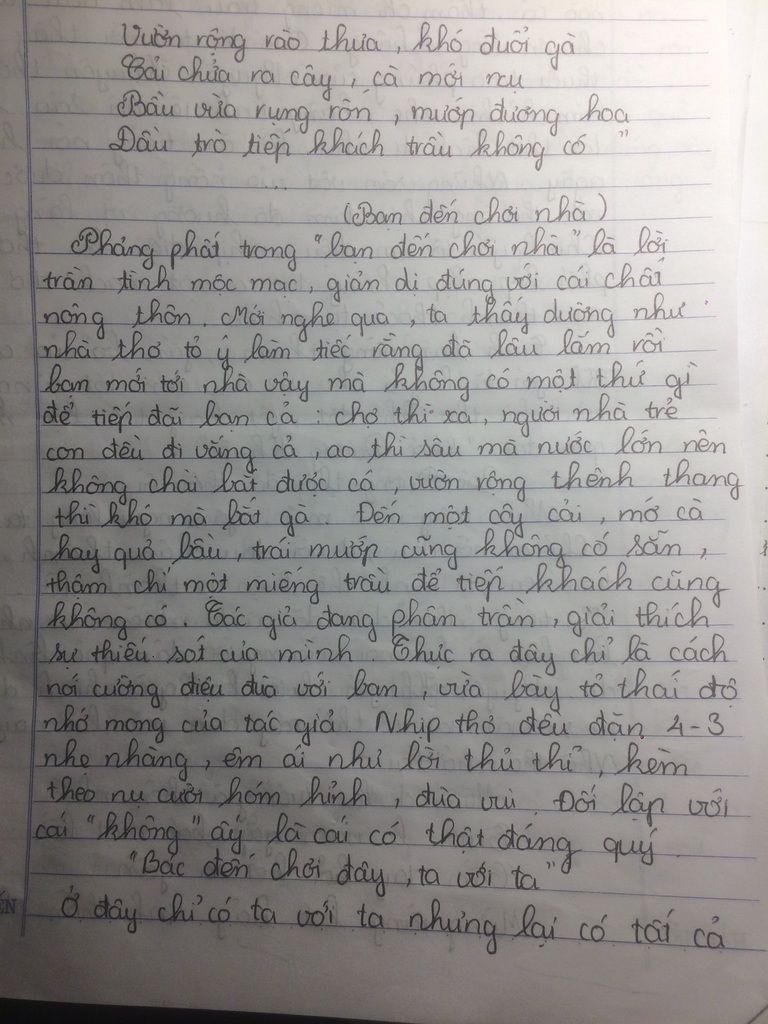 Vườn rộng rào thưa, khó đuổi gà
Cải chửa ra cây, cà mới nụ
Bầu vừa rụng rốn, mướp đương hoa
Đầu trò tiếp khách trầu không có"
...
(Bạn đến chơi nhà)
Phảng phất trong "bạn đến chơi nhà" là lời
trần tình mộc mạc, giản dị đúng với cái chất
nông thôn. Mới nghe qua, ta thấy dường như
nhà thơ tỏ ý làm tiếc rằng đã lâu lắm rồi
bạn mới tới nhà vậy mà không có một thứ gì
để tiếp đãi bạn cả: chợ thì xa, người nhà trẻ
con đều đi vắng cả, ao thì sâu mà nước lớn nên
không chài bắt được cá, vườn rộng thênh thang
thì khó mà bắt gà. Đến một cây cải, mớ cà
hay quả bầu, trái mướp cũng không có sẵn,
thậm chí một miếng trầu để tiếp khách cũng
không có. Tác giả đang phân trần, giải thích
sự thiếu sót của mình. Thực ra đây chỉ là cách
nói cường điệu đùa với bạn, vừa bày tỏ thái độ
nhớ mong của tác giả. Nhịp thơ đều đặn 4-3
nhẹ nhàng, êm ái như lời thủ thỉ, kèm
theo nụ cười hóm hỉnh, đùa vui. Đối lập với
cái "không" ấy là cái có thật đáng quý
"Bác đến chơi đây, ta với ta"
Ở đây chỉ có ta với ta nhưng lại có tất cả